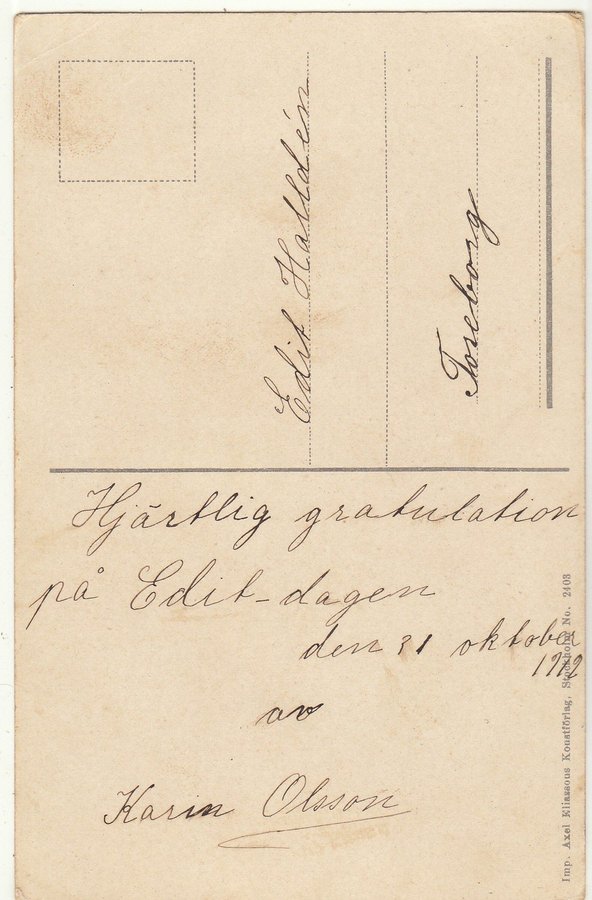 Edit Halldén
Toreborg
Hjärtlig gratulation
på Edit-dagen
den 31 oktober
1912
av
Karin Olsson
Imp. Axel Eliassons Konstförlag, Stockholm No. 2403